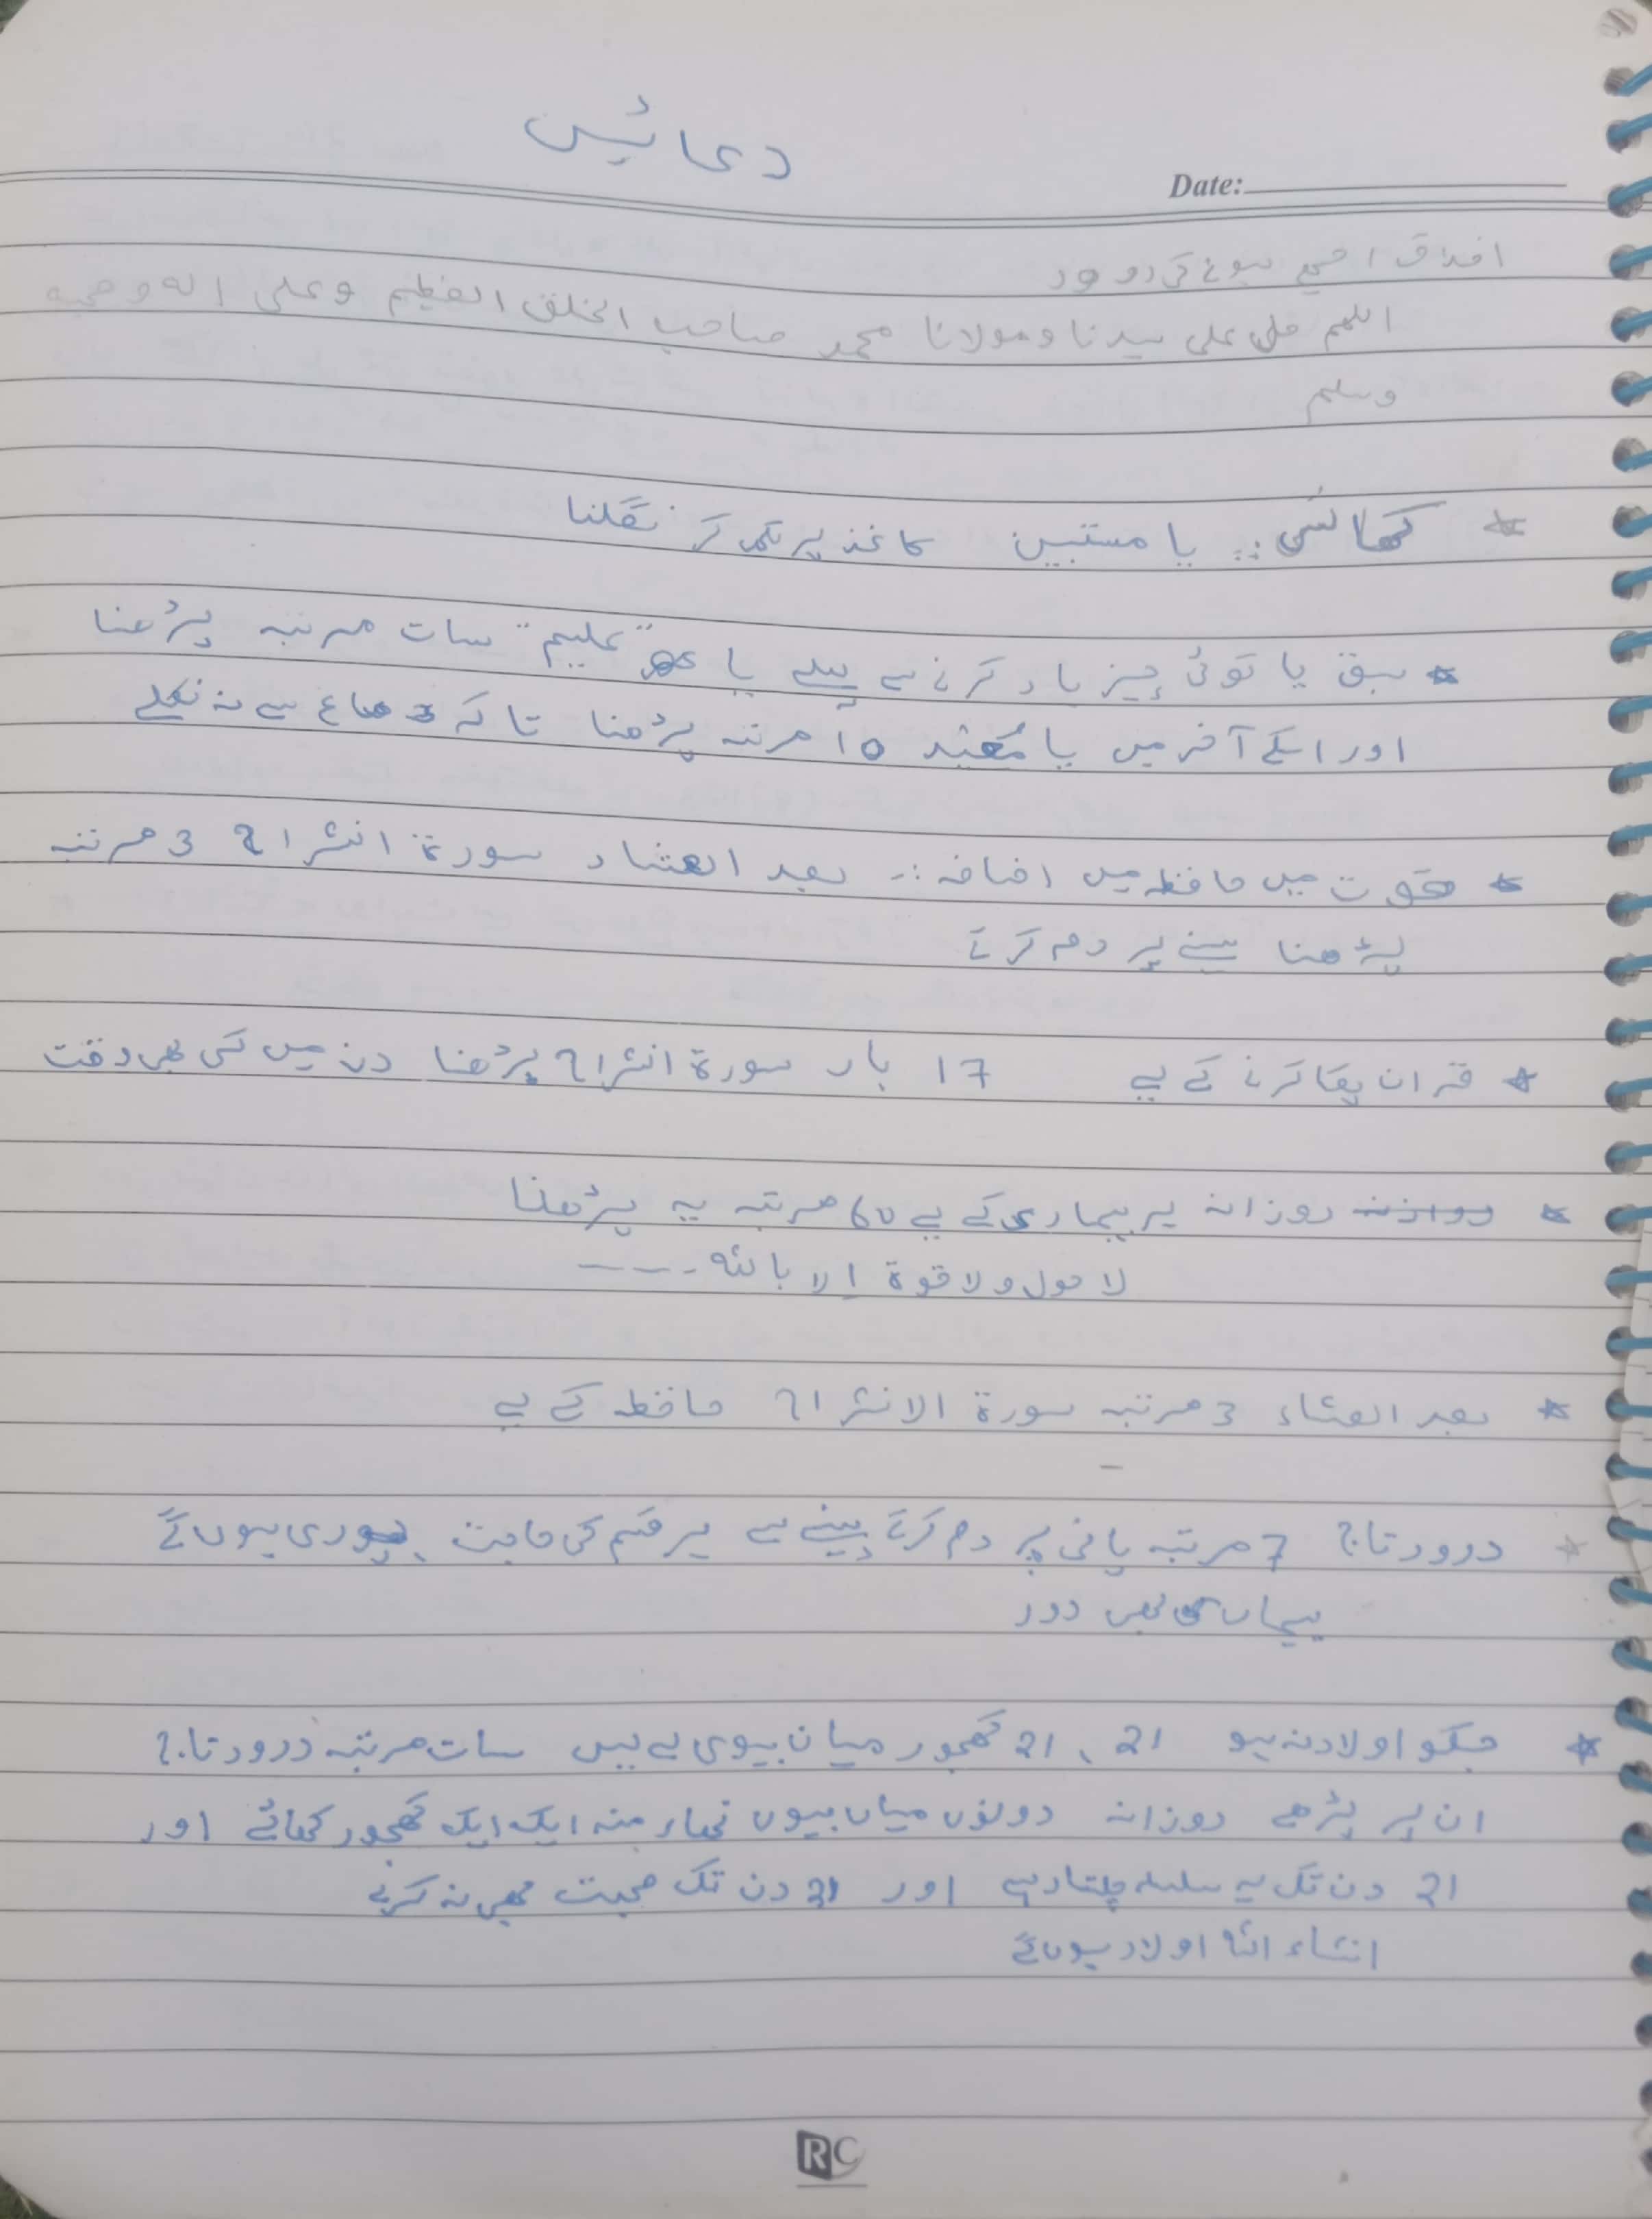 دعائیں
Date:
اخلاق اچھے ہونے کی درود
اللھم صل علی سیدنا ومولانا محمد صاحب الخلق العظیم وعلی الہ وصحبہ
وسلم
* کھانسی :. یا متین کاغذ پر لکھ کر نگلنا
* سبق یا کوئی چیز یاد کرنے سے پہلے یا "علیم" سات مرتبہ پڑھنا
اور اسکے آخر میں یا 10 مرتبہ پڑھنا تا کہ دماغ سے نہ نکلے
* قوت میں حافظہ میں اضافہ :. بعد العشاء سورۃ انشراح 3 مرتبہ
پڑھنا سینے پر دم کرکے
* قران پکا کرنے کے لیے 17 بار سورۃ انشراح پڑھنا دن میں کسی بھی وقت
* روزانہ ہر بیماری کے لیے 60 مرتبہ یہ پڑھنا
لا حول ولا قوۃ إلا باللہ ----
* بعد العشاء 3 مرتبہ سورۃ الانشراح حافظہ کے لیے
* درود تاج 7 مرتبہ پانی پر دم کرکے پینے سے ہر قسم کی حاجت پوری ہوں گے
بھی دور
* جسکو اولاد نہ ہو 21، 21 کھجور میان بیوی لے لیں سات مرتبہ درود تاج
ان پر پڑھے روزانہ دونوں میاں بیوں نہار منہ ایک ایک کھجور کھائے اور
21 دن تک یہ سلسلہ چلتا رہے اور 21 دن تک صحبت بھی نہ کرنے
انشاء اللہ اولاد ہوں گے
RC